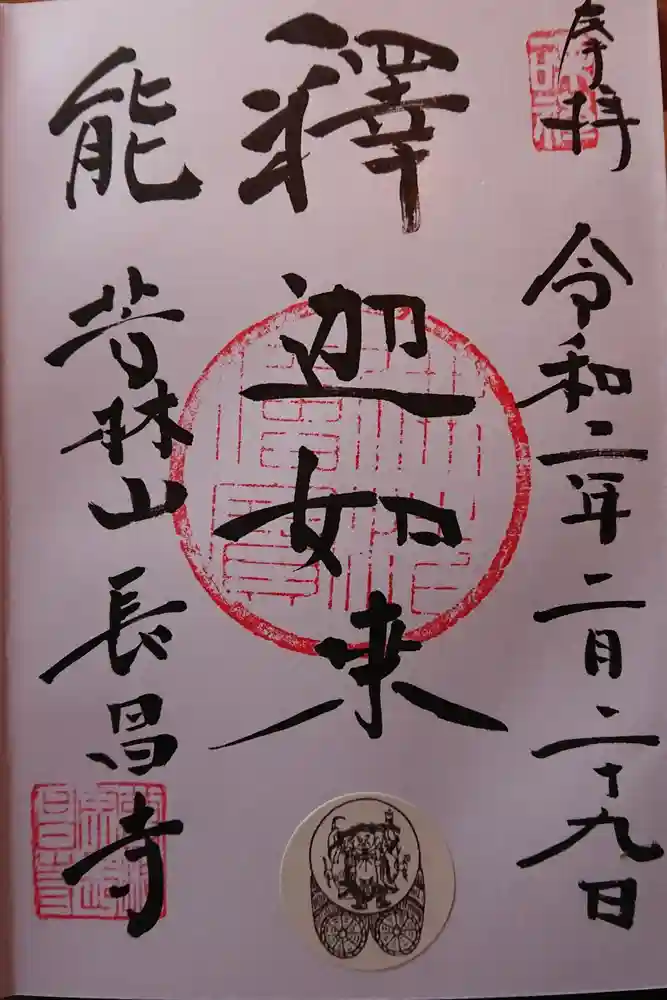 奉拝
令和二年二月二十九日
釋迦如来
能
芳林山長昌寺